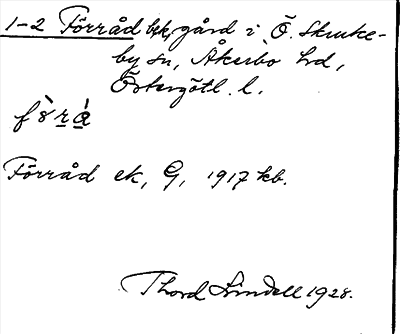 1-2 Förråd bpk, gård i Ö. Skruke-
by sn, Åkerbo hd,
Östergötl. l.
Förråd ek, G, 1917 kb.
Thord Lindell 1928.